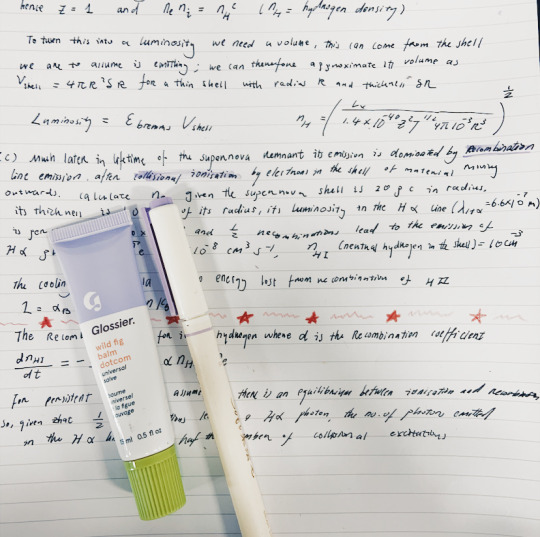 hence Z = 1 and n_e n_i = n_H² (n_H = hydrogen density)
To turn this into a luminosity we need a volume, this can come from the shell
we are to assume is emitting; we can therefore approximate its volume as
V_shell = 4πR²δR for a thin shell with radius R and thickness δR
Luminosity = ε_bremms V_shell
n_H = ( L_v / 1.4 × 10⁻⁴⁰ Z² 4π10⁻³R³ )^½
(c) Much later in lifetime of the supernova remnant its emission is dominated by recombination
line emission after collisional ionisation by electrons in the shell of material moving
outwards. Calculate given the supernova shell is 20 pc in radius,
its thickness is of its radius, its luminosity in the Hα line (λ_Hα = 6.6×10⁻⁷ m)
is and ½ recombinations lead to the emission of
Hα 10⁻⁸ cm³ s⁻¹, n_HI (neutral hydrogen in the shell) = 10 cm⁻³
the energy lost from recombination of HII
The hydrogen where α is the Recombination coefficient
dn_HI/dt = - α n_H
For persistent there is an equilibrium between ionisation and
so, given that ½ Hα photon, the no. of photons emitted
in the Hα half of collisional excitations
Glossier.
wild fig
balm
dotcom
universal
salve
baume
universel
figue
sauvage
15 ml 0.5 fl oz